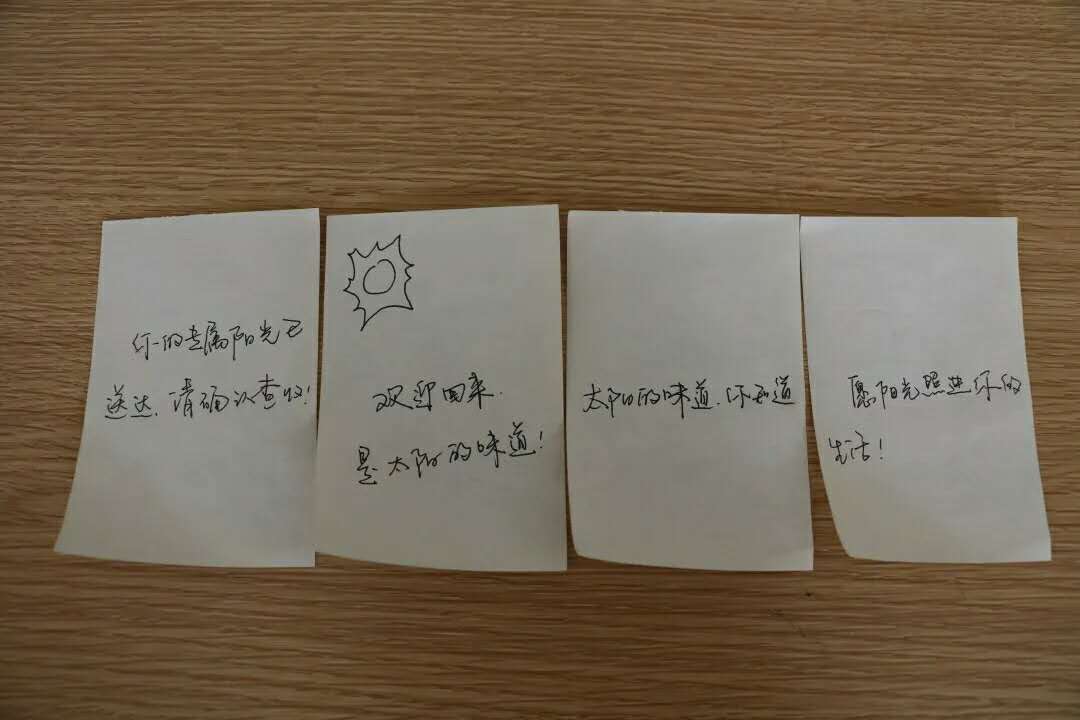 你的专属阳光已
送达，请确认查收！
欢迎回来.
是太阳的味道！
太阳的味道.你知道
愿阳光照进你的
生活！